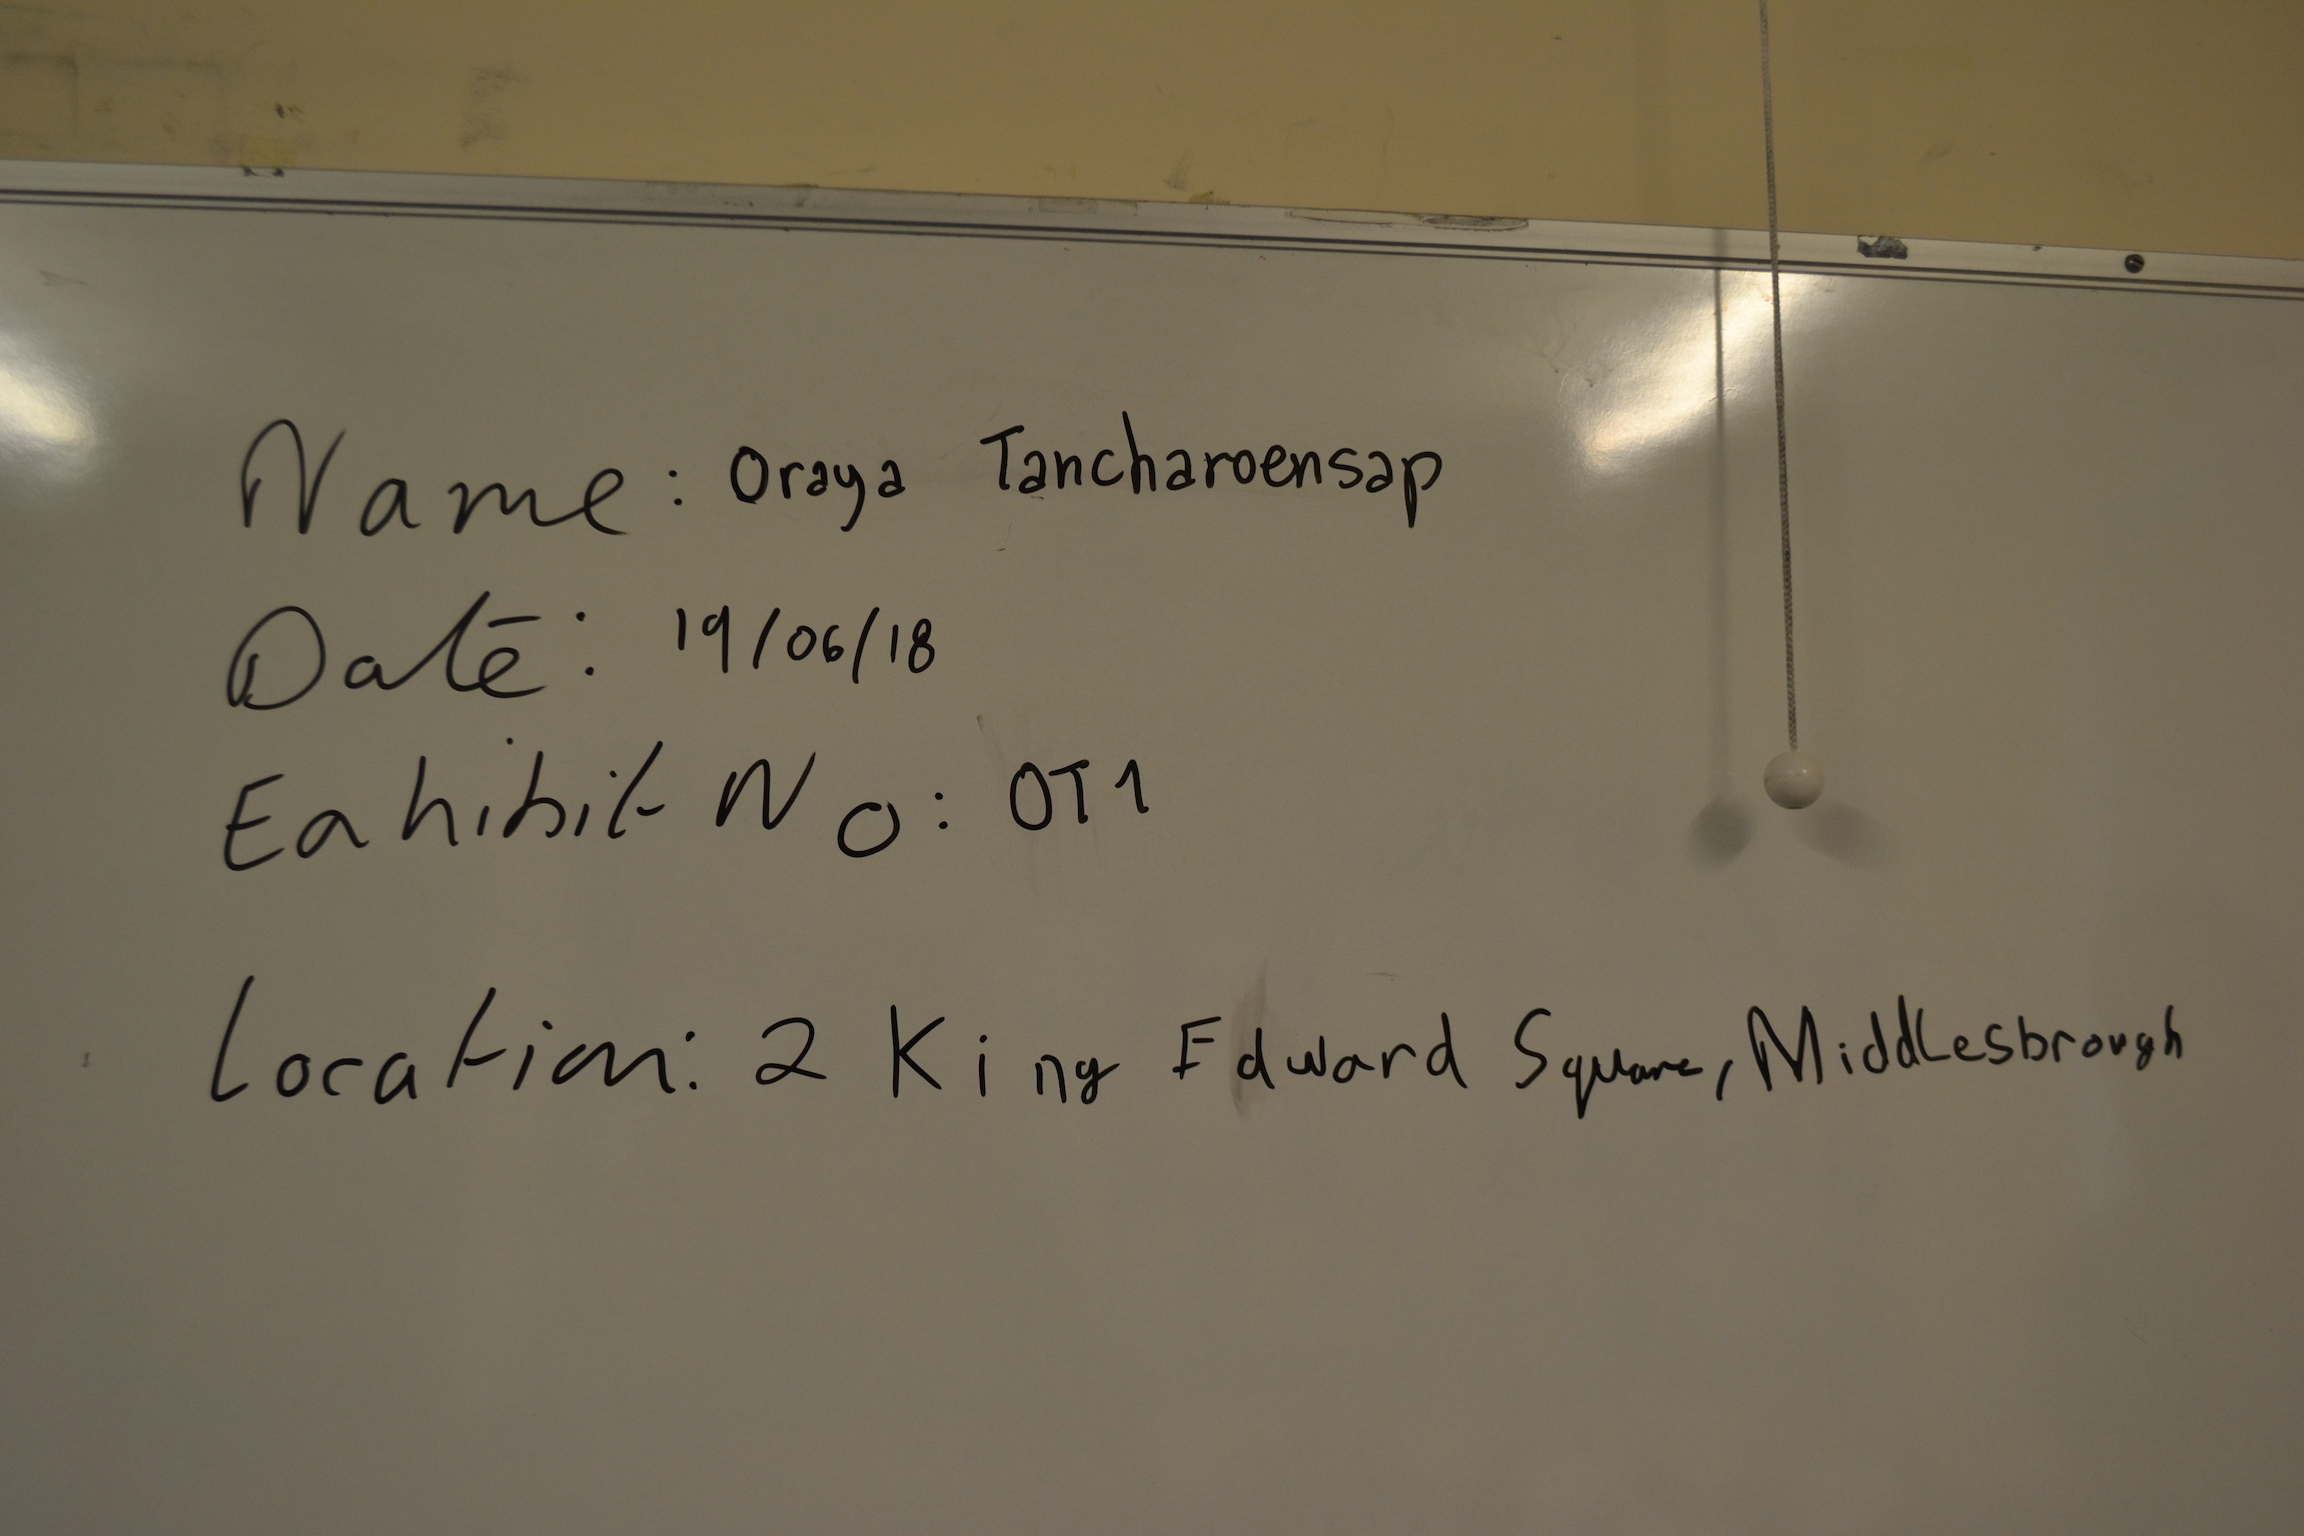 Name: Oraya Tancharoensap
Date: 19/06/18
Eahibit No: OT1
Location: 2 King Edward Square, Middlesbrough